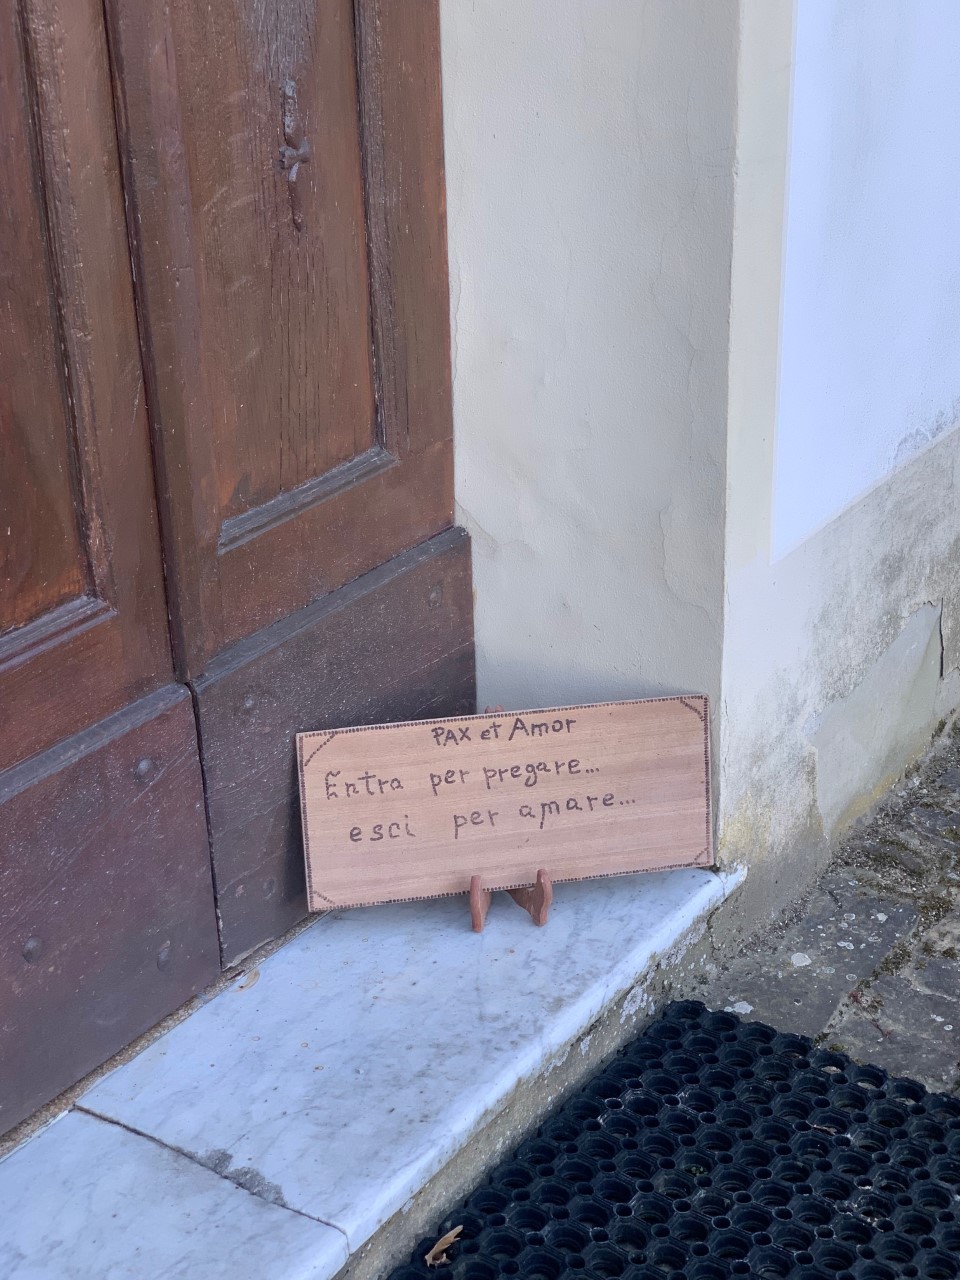 PAX et Amor
Entra per pregare...
esci per amare...